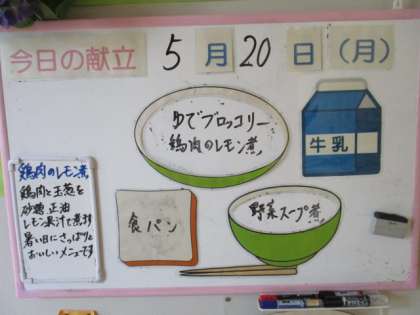 今日の献立 5月20日(月)
ゆでブロッコリー
鶏肉のレモン煮
牛乳
食パン
野菜スープ煮
鶏肉のレモン煮
鶏肉と玉葱を
砂糖 正油
レモン果汁で煮ます
暑い日にさっぱりと
おいしいメニューです